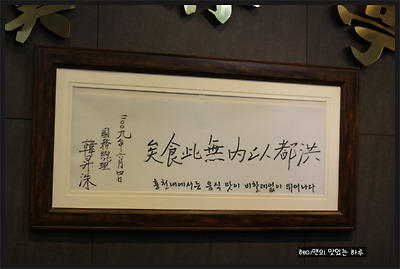 亭
洪都以內無此食矣
홍천내에서는 음식 맛이 비할데없이 뛰어나다
二〇〇九年 月四日
國務總理
韓昇洙
헤이맨의 맛있는 하루